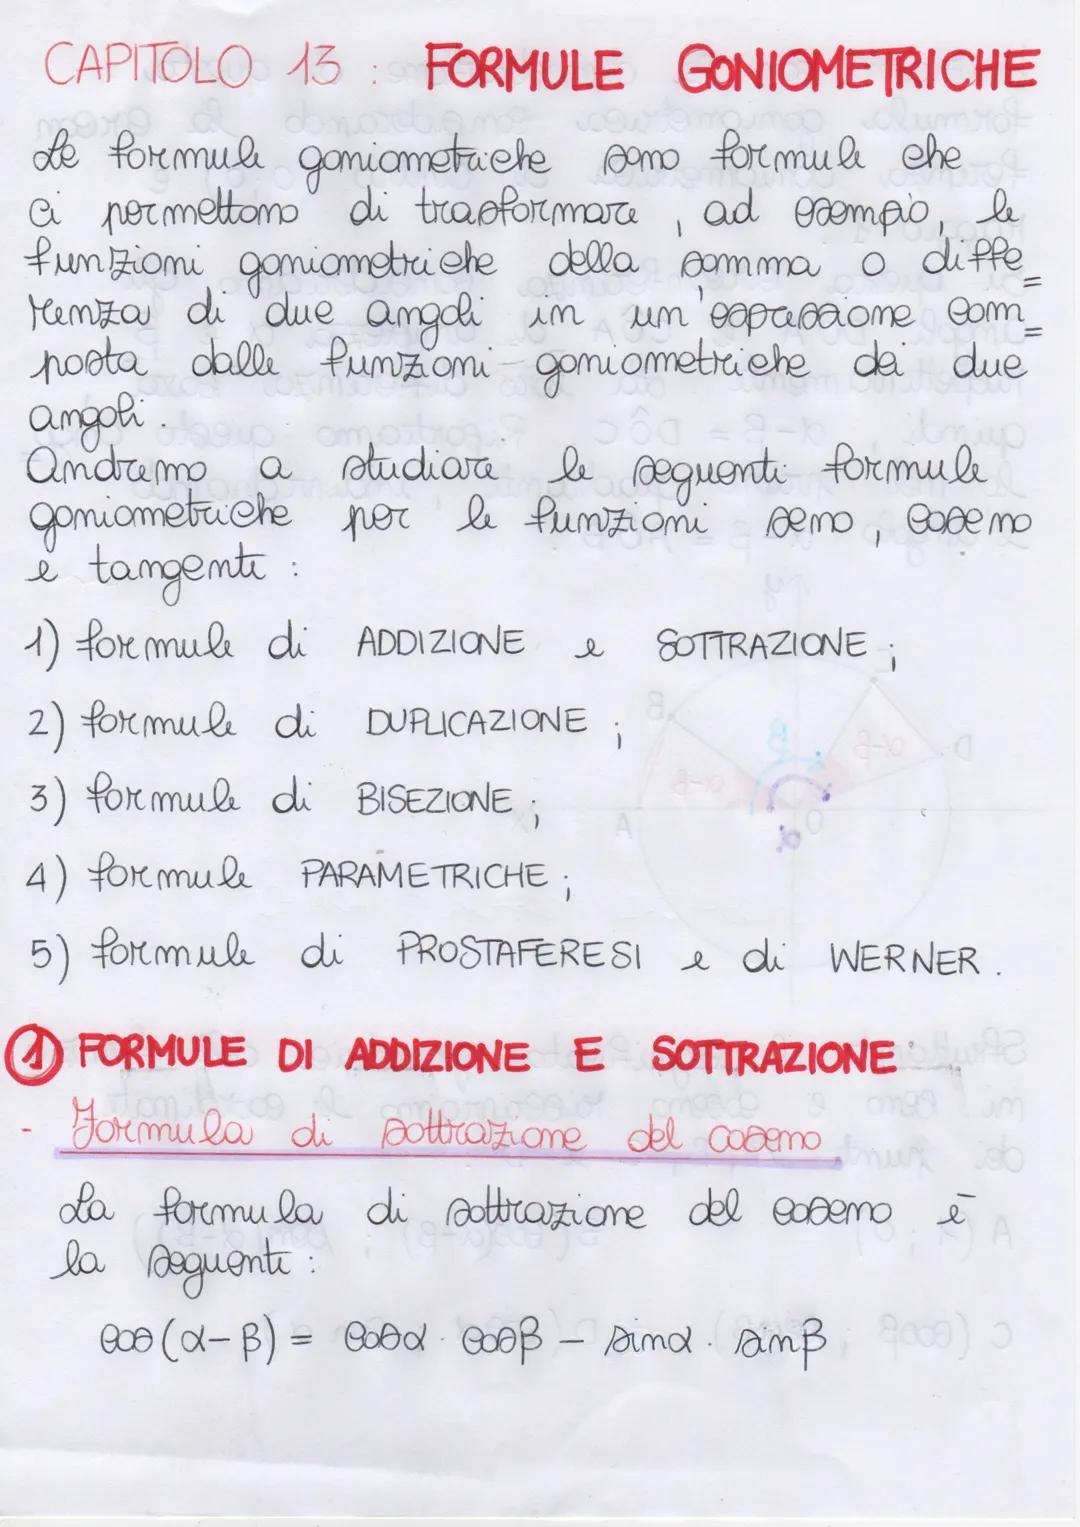 CAPITOLO 13 : FORMULE GONIOMETRICHE
Le formule goniometriche sono formule che
ci permettono di trasformare , ad esempio, le
funzioni goniometriche della somma o diffe=
renza di due angoli in un'espressione com=
posta dalle funzioni goniometriche dei due
angoli.
Andremo a studiare le seguenti formule
goniometriche per le funzioni seno, coseno
e tangente :
1) formule di ADDIZIONE e SOTTRAZIONE ;
2) formule di DUPLICAZIONE ;
3) formule di BISEZIONE ;
4) formule PARAMETRICHE ;
5) formule di PROSTAFERESI e di WERNER .
1 FORMULE DI ADDIZIONE E SOTTRAZIONE
- Formula di sottrazione del coseno
La formula di sottrazione del coseno è
la seguente :
cos (α-β) = cosα · cosβ - sinα · sinβ